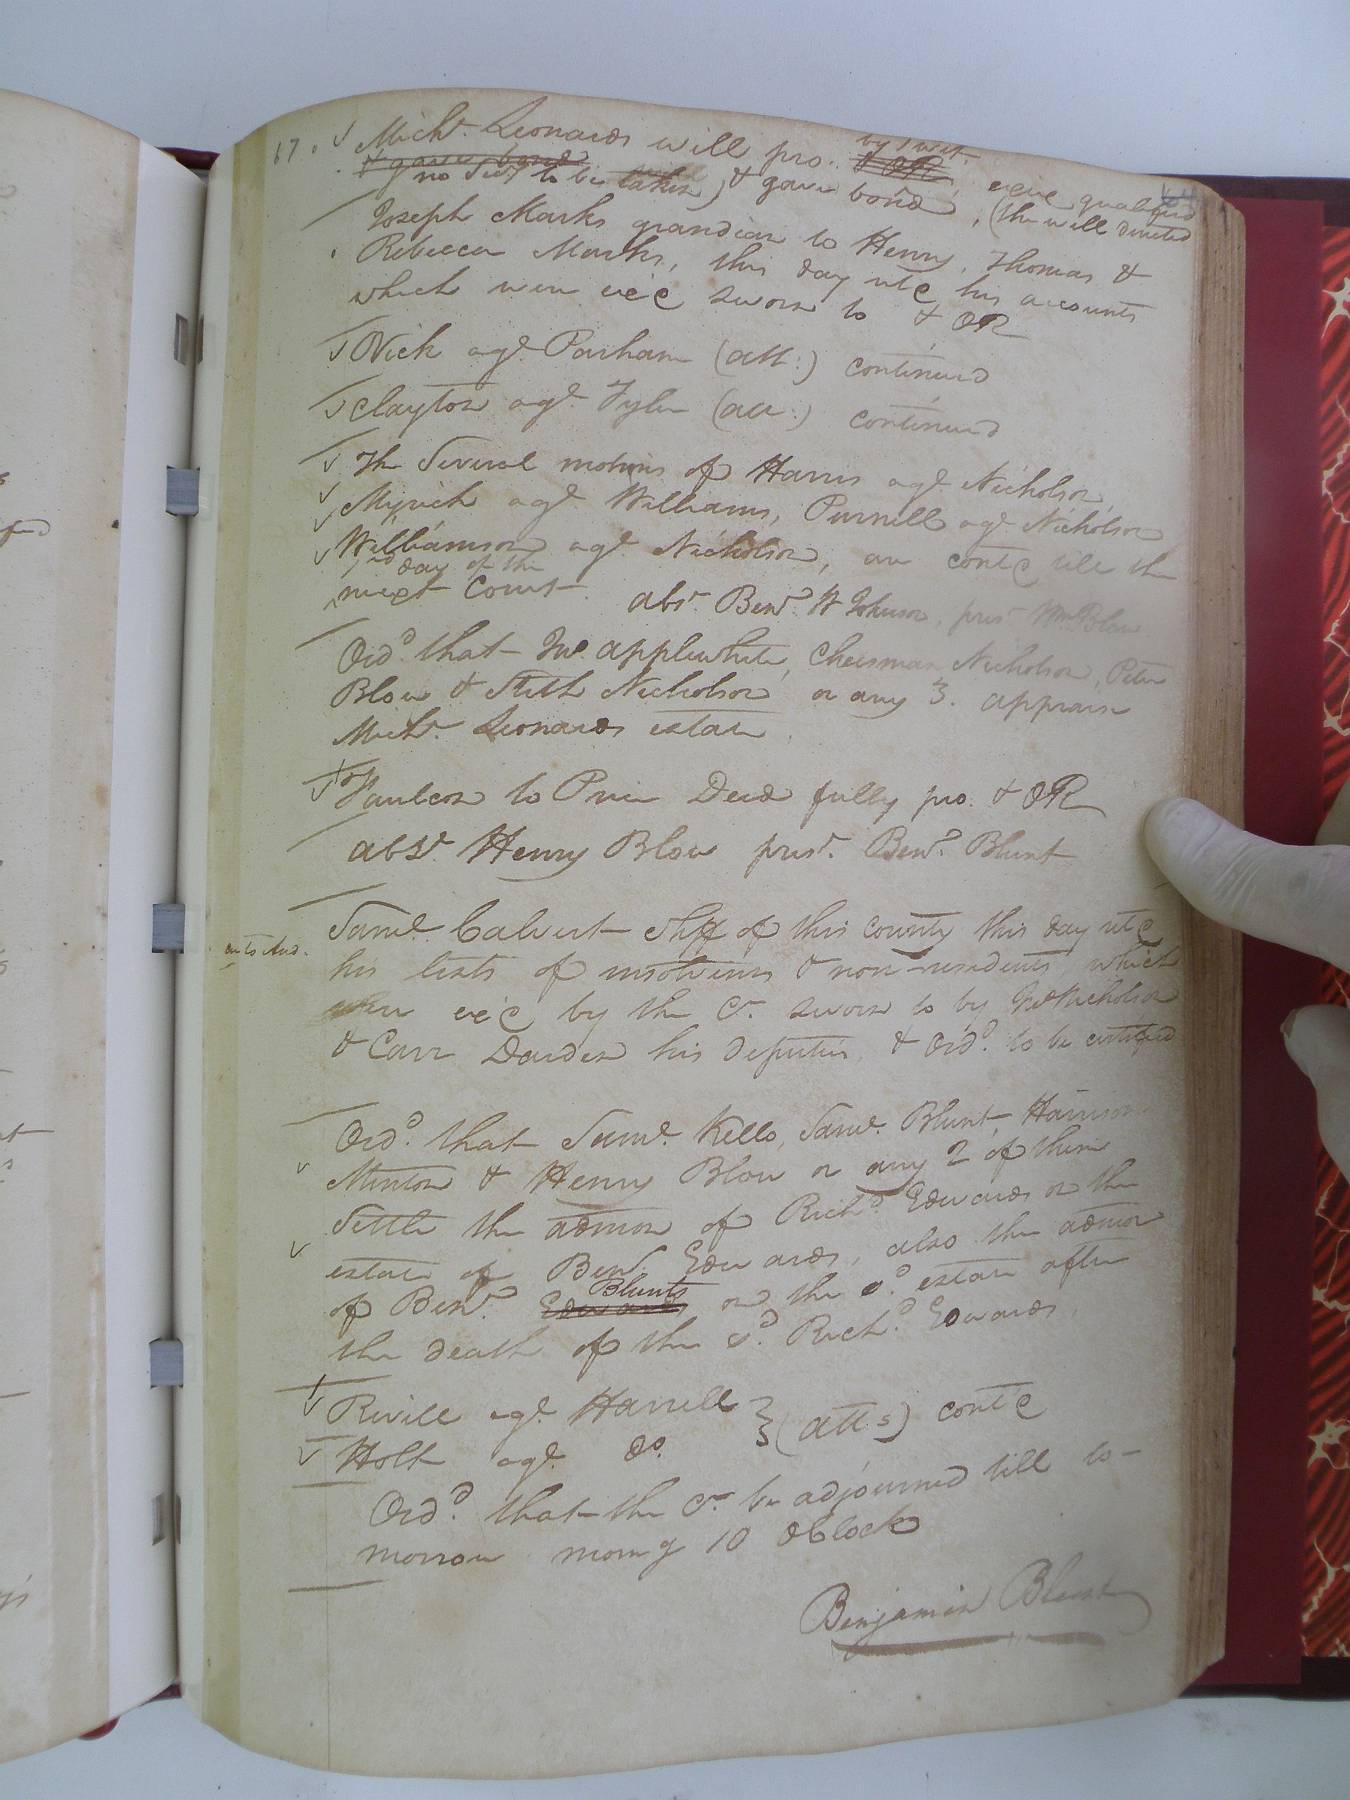 17. Micht. Leonards will pro. by 1 wit. & OR, exec qualified
& gave bond no Secy to be taken) & gave bond, (the will directed
Joseph Marks guardian to Henry, Thomas &
Rebecca Marks, this day retd his accounts
which were recd sworn to & OR
Vick agt. Parham (att:) continued
Clayton agt. Tyler (att:) continued
The Several motions of Harris agt. Nicholson,
Myrick agt. Williams, Purnell agt. Nicholson
Williamson agt. Nicholson, are contd till the
day of the
next Court. abst. Benj. W Johnson, prest Wm Blow
Ord. that Jno. applewhite, Cheisman Nicholson, Peter
Blow & Stith Nicholson or any 3. appraise
Micht. Leonards estate.
Faulcon to Price Deed fully pro. & OR
abst. Henry Blow prest. Benj. Blunt
Saml. Calvert Shff of this county this day retd
his lists of insolvents & non-residents, which
were recd by the Ct. sworn to by Nicholson
& Carr Darden his deputies, & Ord. to be certified
Ord. that Saml. Kello, Saml. Blunt, Harrison
Minton & Henry Blow or any 2 of them
Settle the admon of Richd. Edwards on the
estate of Benj. Edwards, also the admon
of Benj. Edwards Blunts on the sd. estate after
the death of the sd. Richd. Edwards.
Rivill agt. Harrell } (atts) contd
Holt agt. do.
Ord. that the Ct. be adjourned till to-
morrow morng 10 oClock
Benjamin Blunt